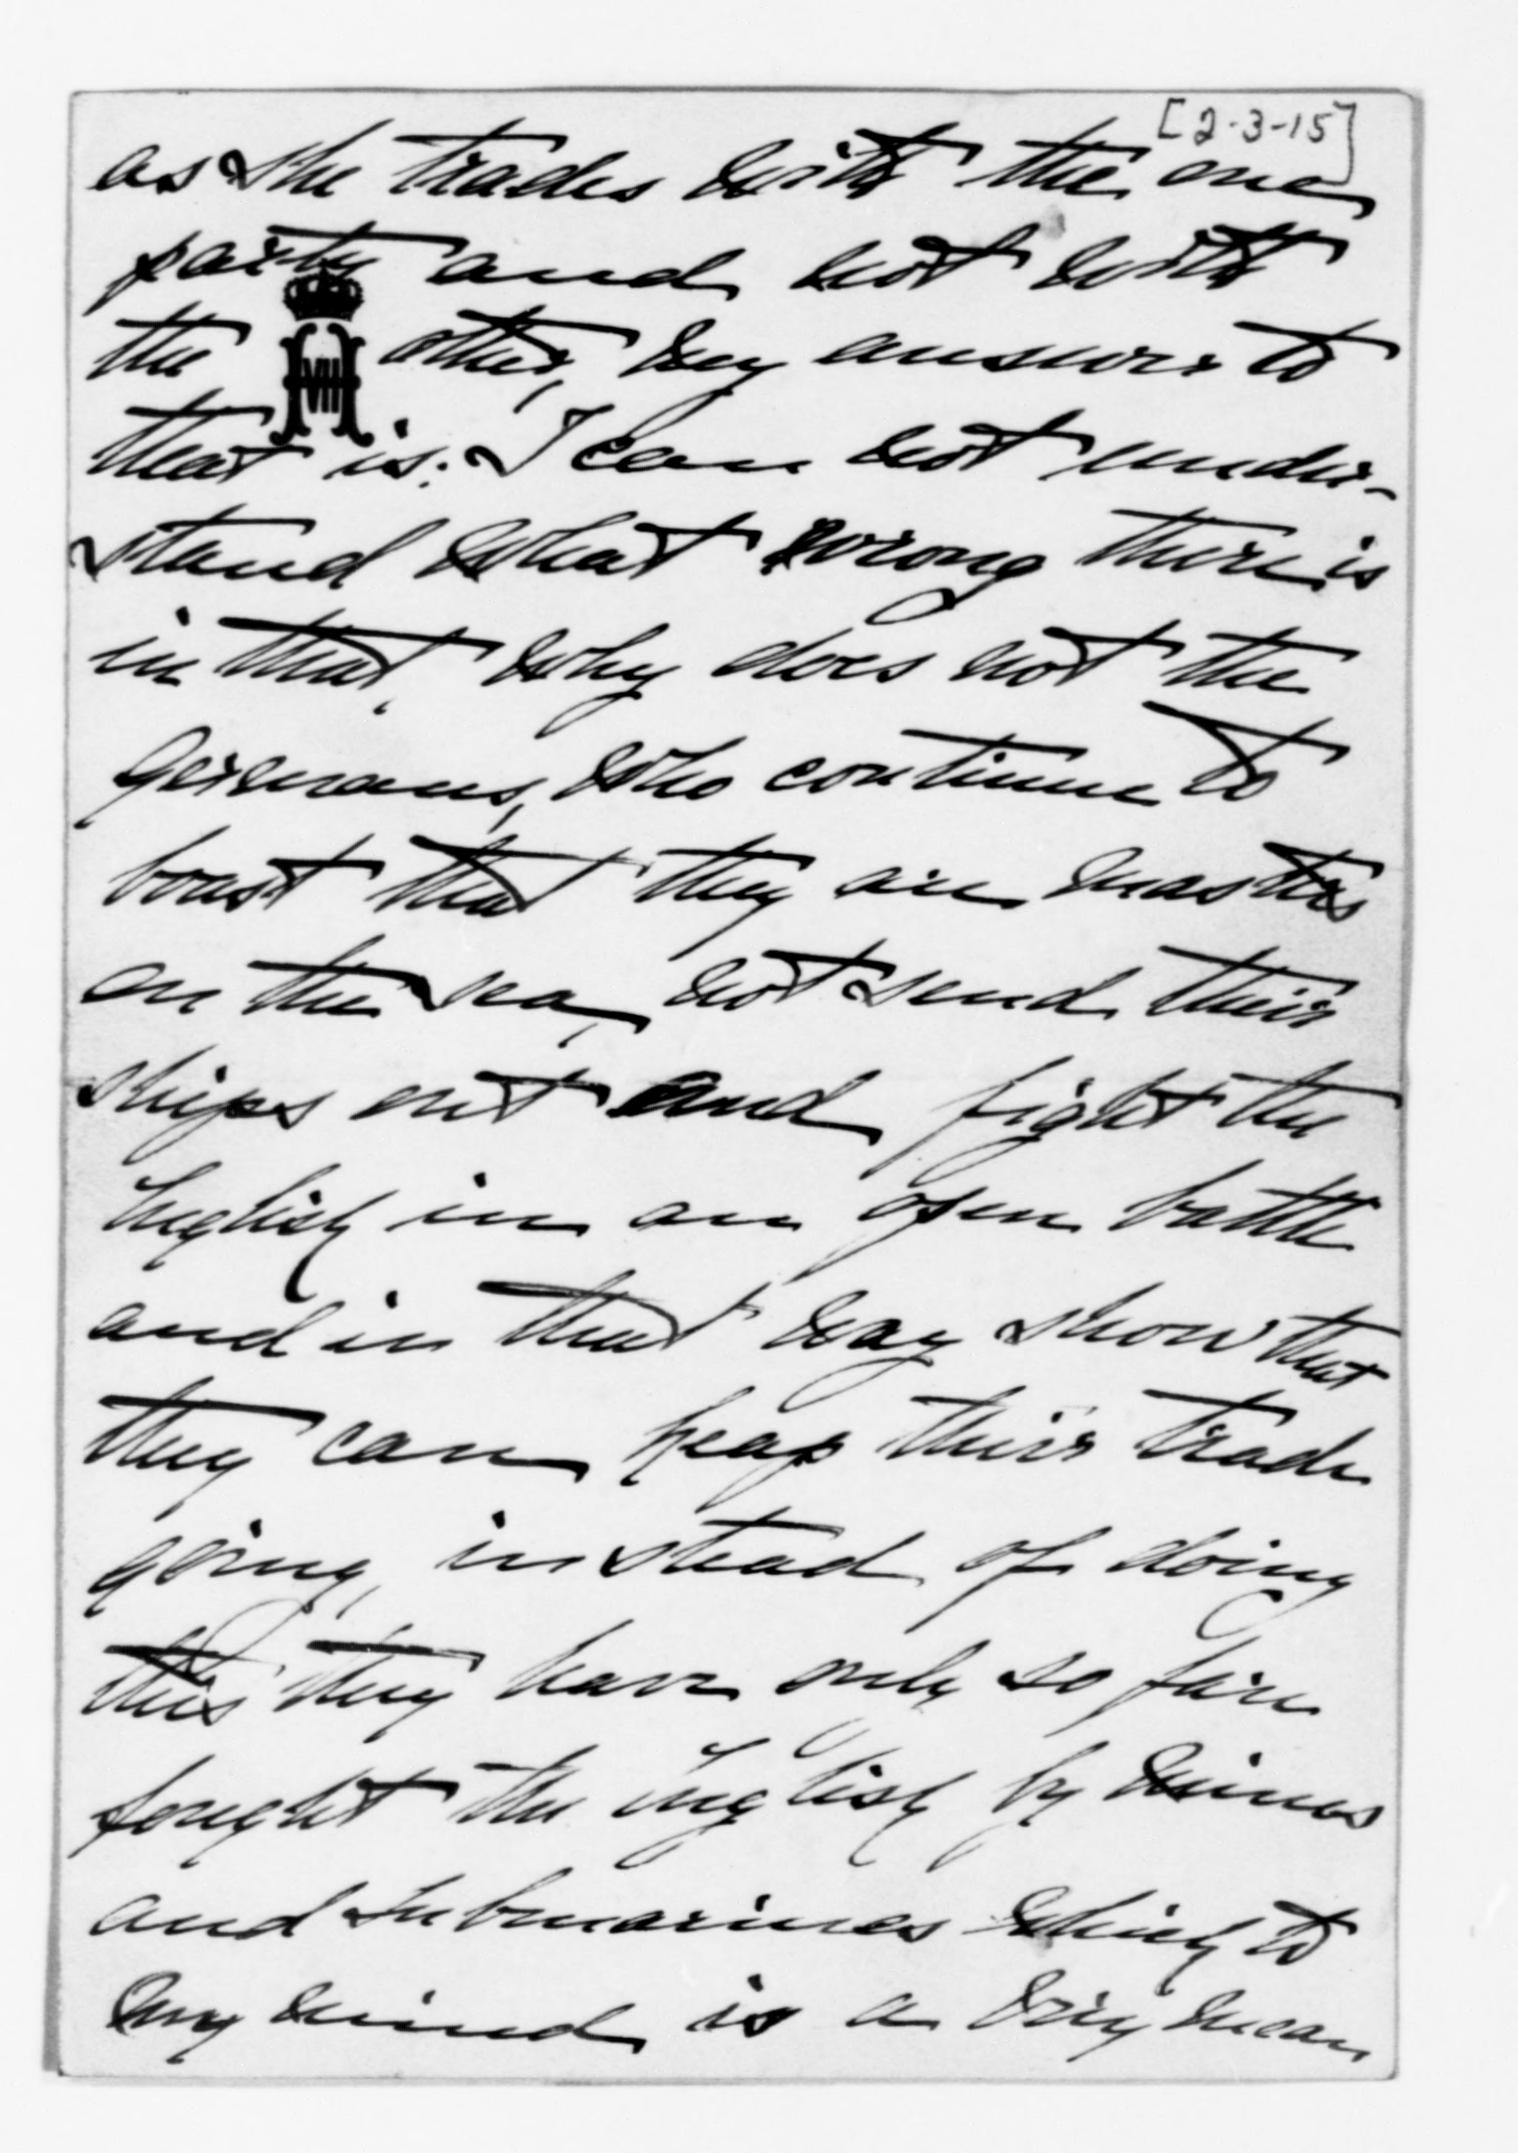 [2-3-15]
as she trades with the one
party and not with
the other, my answer to
that is: I can not under-
stand what wrong there is
in that, why does not the
Germans, who continue to
boast that they are masters
on the sea, not send their
ships out and fight the
English in an open battle
and in that way show that
they can keap their trade
going, instead of doing
this they have only so fare
fought the English by mines
and submarines which to
my mind is a very mean